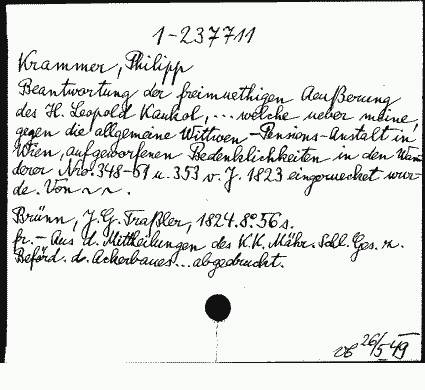 1-237711
Krammer, Philipp
Beantwortung der freimuethigen Aeußerung
des H. Leopold Kankol, ... welche ueber meine,
gegen die allgemeine Wittwen-Pensions-Anstalt in
Wien, aufgeworfenen Bedenklichkeiten in den Wan-
derer Nro. 348-61 u. 353 v. J. 1823 eingeruecket wur-
de. Von ~~.
Brünn, J. G. Traßler, 1824. 8º. 56 s.
fr. - Aus d. Mittheilungen des K.K. Mähr. Schl. Ges. z.
Beförd. d. Ackerbaues... abgedruckt.
26/5 49